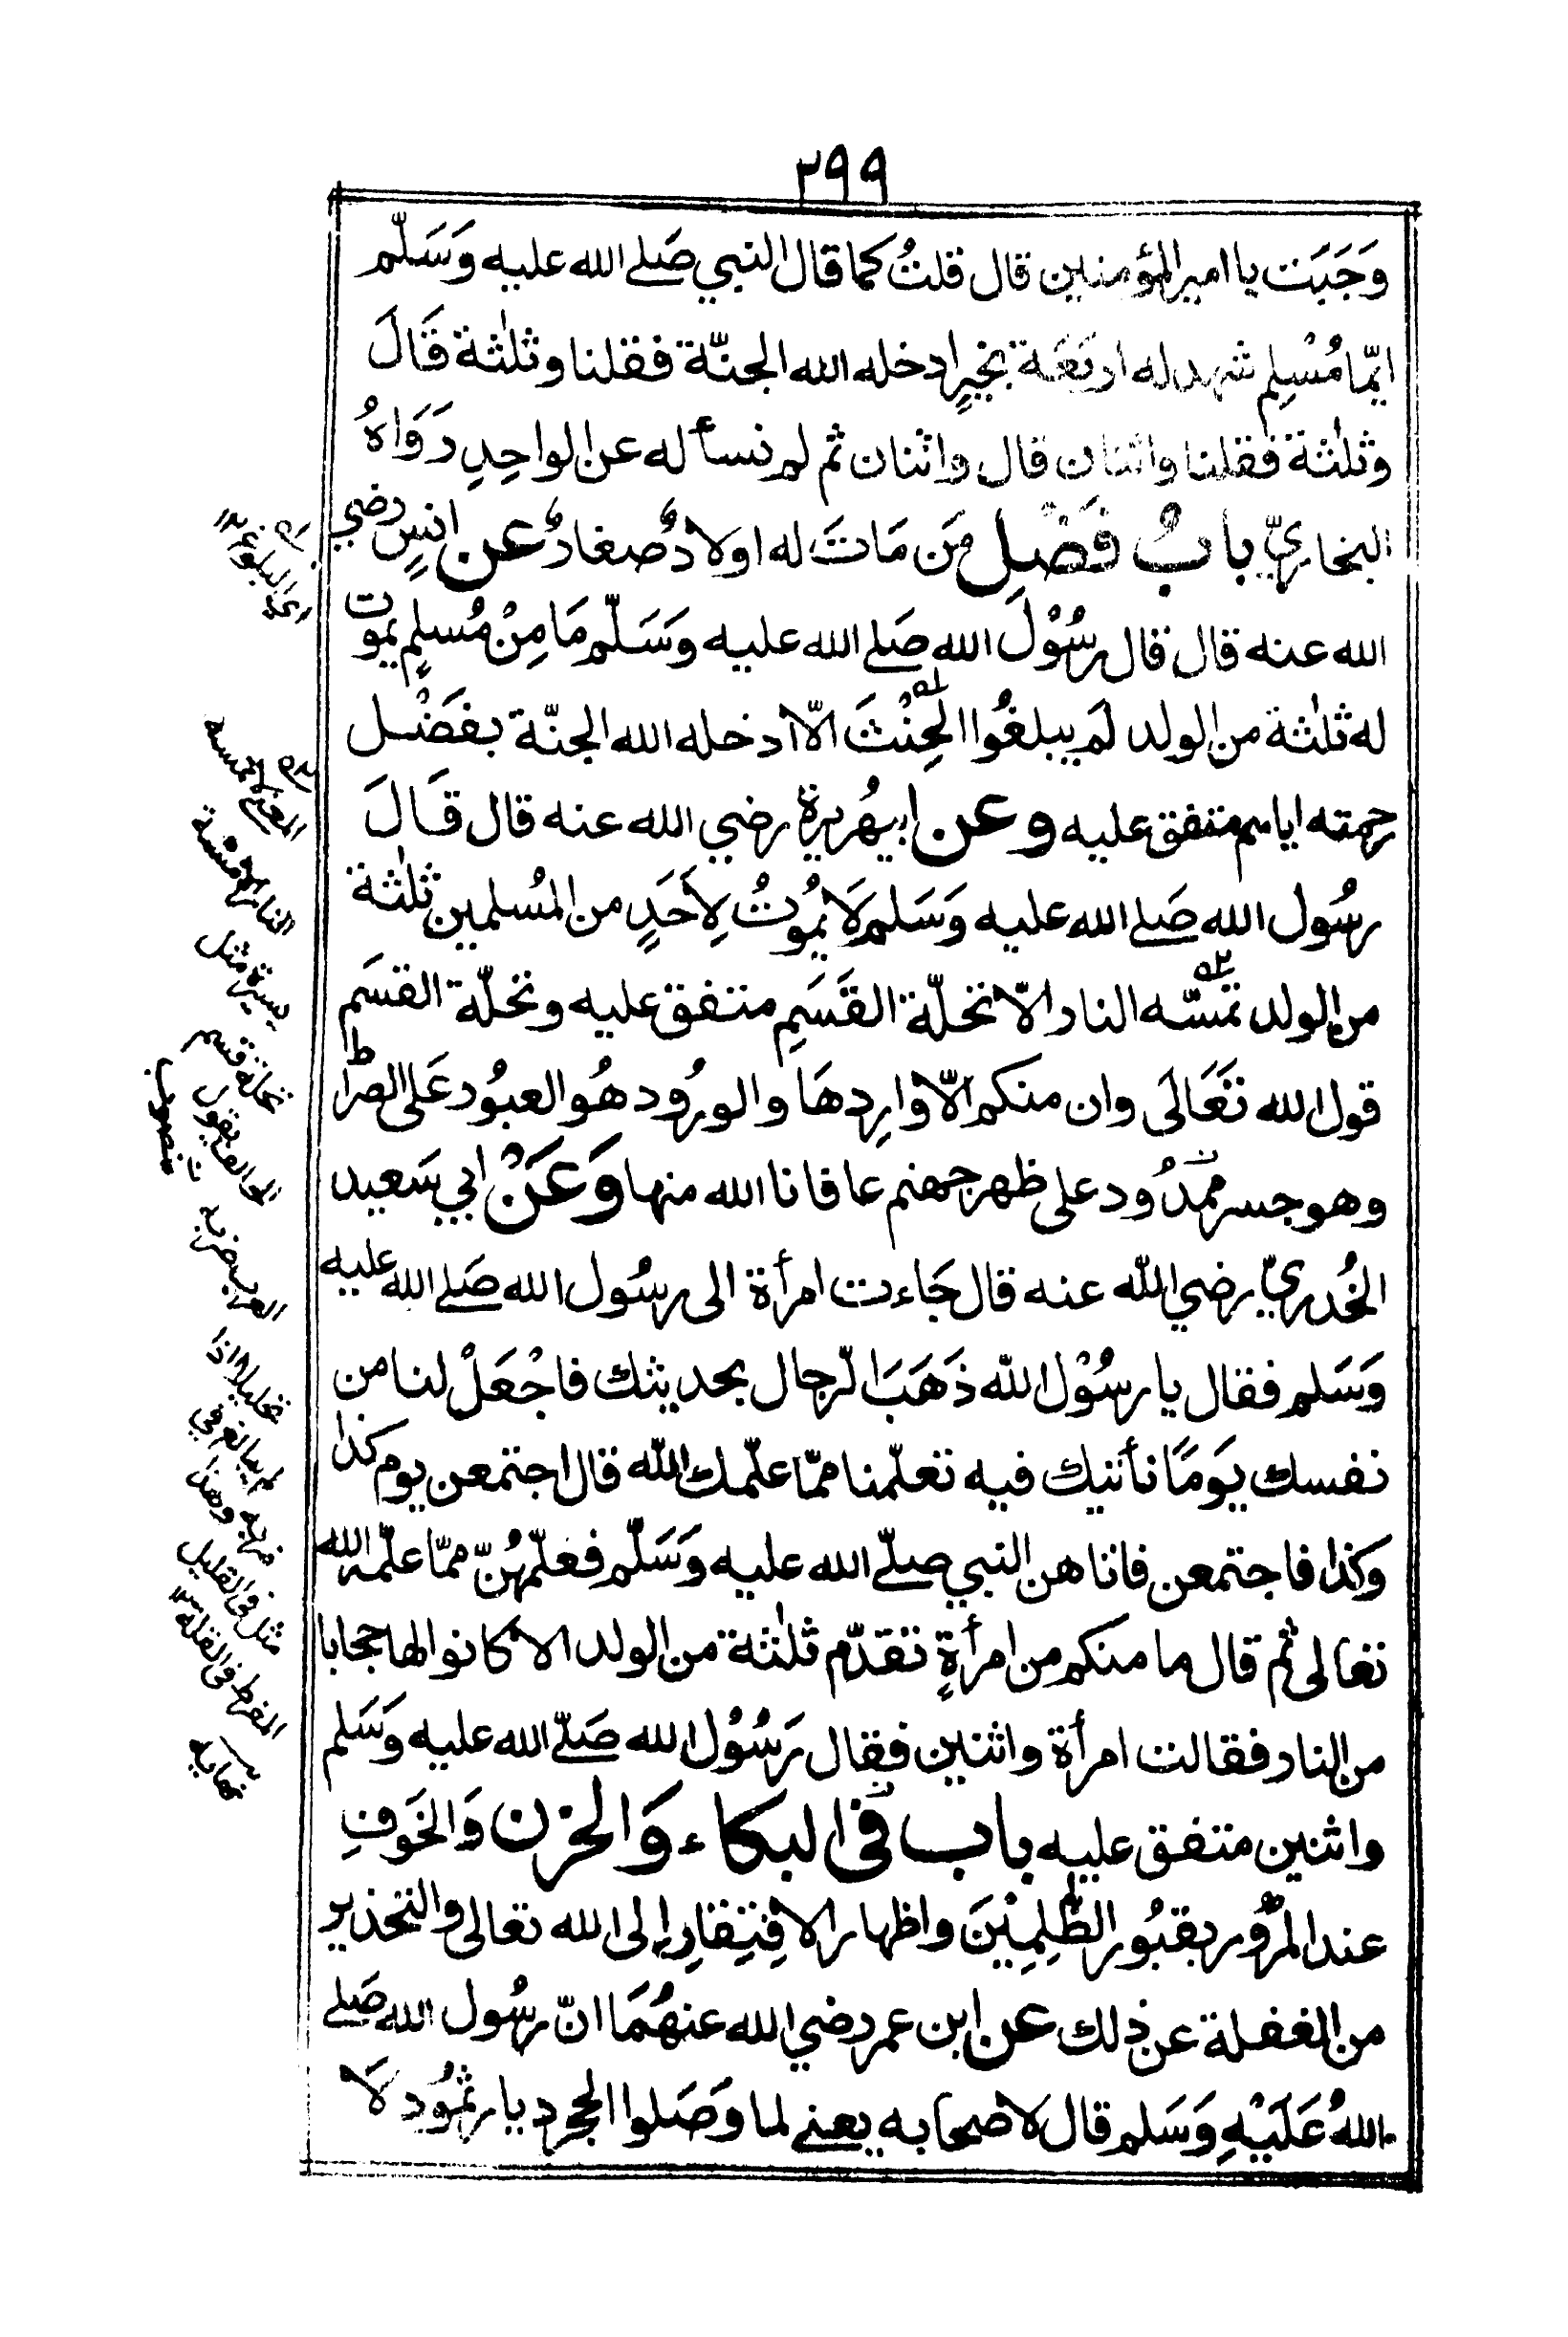 ٢٩٩
وَجَبَت يا امير المؤمنين قال قلتُ كما قال النبي صَلے الله عليه وَسَلّم
ايّما مُسْلِم شهد له اربَعَة بخيرٍ ادخله الله الجنّة فقلنا وثلٰثة قَالَ
وثلٰثة فقلنا واثنان قال واثنان ثم لم نسأله عن الواحِدِ رَوَاهُ
البخاريّ بابُ فَضْلِ مَن مَاتَ له اولادٌ صغارٌ عن انسٍ رضي
الله عنه قال قال رسُوْلَ الله صَلے الله عليه وَسَلّم مَا مِنْ مُسلمٍ يموت
له ثلٰثة من الولد لَم يبلغُوا الحِنْثَ الّا ادخله الله الجنّة بفَضْل
رحمته اياهم متفق عليه وعن ابي هُريرة رضي الله عنه قال قَالَ
رسُول الله صَلے الله عليه وَسَلم لَا يمُوتُ لِأحَدٍ من المُسلمين ثلٰثة
من الولد تمسّه النار الّا تحلّة القَسَمِ متفق عليه وتحلّة القسَم
قول الله تَعَالَى وان منكم الّا وارِدهَا والورُود هُو العبُور عَلى الصراط
وهو جسر ممدُود على ظهر جهنم عافانا الله منها وَعَنْ ابي سَعيد
الخُدريّ رضي اللّه عنه قال جَاءت امرأة الى رسُول الله صَلے الله عليه
وَسَلم فقال يا رسُوْل اللّه ذَهَبَ الرّجال بحديثك فاجْعَلْ لنا من
نفسك يَومًا نأتيك فيه تعلّمنا ممّا علّمك اللّه قال اجتمعن يوم كذا
وكذا فاجتمعن فاتاهن النبي صلّے الله عليه وَسَلّم فعلّمهُنّ ممّا علّمه الله
تعالى ثم قال ما منكم من امرأةٍ تقدّم ثلٰثة من الولد الا كانوا لها حجابا
من النار فقالت امرأة واثنين فقال رَسُوْل الله صَلّے الله عليه وَسَلم
واثنين متفق عليه باب في البكاء وَالحزن وَالخَوفِ
عند المرُور بقبُور الظّٰلِمِيْنَ واظهار الافتِقارِ إلى الله تعالى والتحذير
من الغفلة عن ذلك عن ابن عمر رضي الله عنهُمَا انّ رسُول الله صَلے
اللهُ عَلَيْهِ وَسَلم قال لاصحابه يعنے لما وَصَلوا الحجر ديار ثمُود لَا
اي البلوغ ١٢
المعنى لا تمسه
النار الا مسة
يسيرة مثل
تحلة قسم
الحالف يقول
العرب ضربه
تحليلا اذا
لم يبالغ في
ضربه وهذا
مثل في القليل
المفرط في القلة ١٢
نهاية